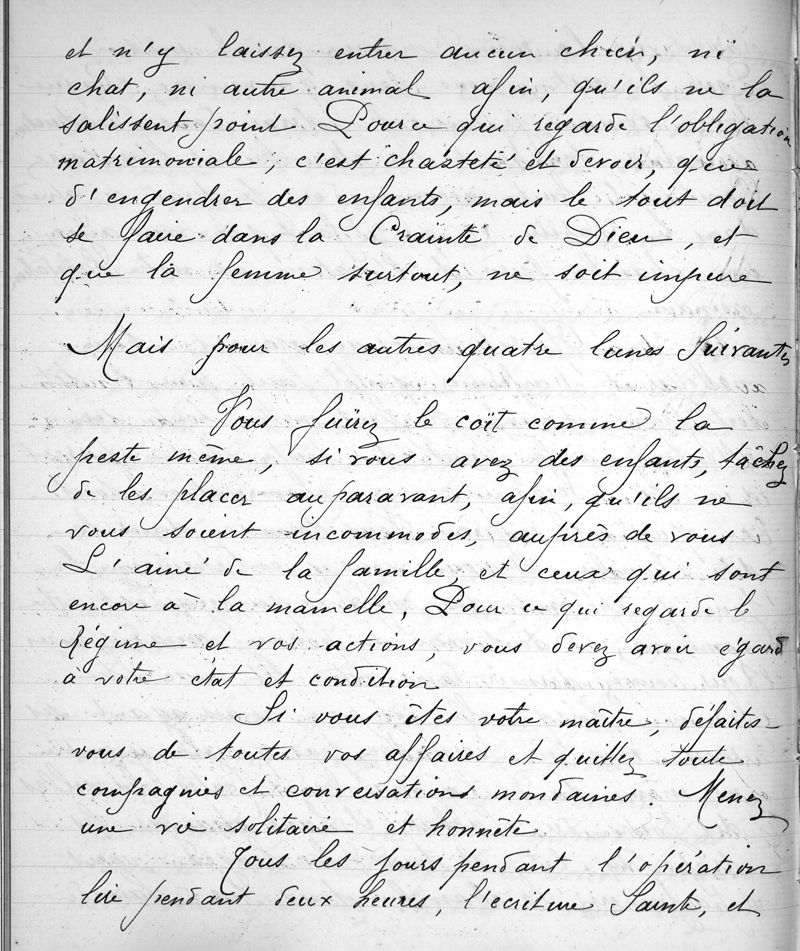 et n'y laissez entrer aucun chien, ni
chat, ni autre animal afin, qu'ils ne la
salissent point Pour ce qui regarde l'obligation
matrimoniale, c'est chasteté et devoir, que
d'engendrer des enfants, mais le tout doit
se faire dans la Crainte de Dieu, et
que la femme surtout, ne soit impure
Mais pour les autres quatre lunes Suivantes
Vous fuirez le coït comme la
peste même, si vous avez des enfants, tâchez
de les placer auparavant, afin, qu'ils ne
vous soient incommodes, auprès de vous
L'ainé de la famille, et ceux qui sont
encore à la mamelle, Pour ce qui regarde le
Régime et vos actions, vous devez avoir égard
à votre état et condition
Si vous êtes votre maître, défaites-
vous de toutes vos affaires et quittez toute
compagnies et conversations mondaines. Menez
une vie solitaire et honnête
Tous les jours pendant l'opération
lire pendant deux heures, l'ecriture Sainte, et